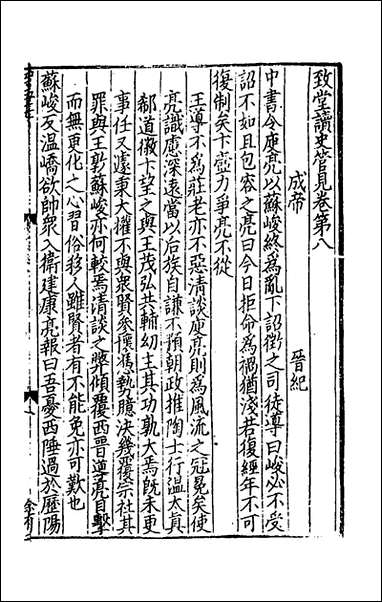 致堂讀史管見卷第八
成帝　晉紀
中書令庾亮以蘇峻終為亂下詔徵之司徒導曰峻必不受
詔不如且包容之亮曰今日拒命為禍猶淺若復經年不可
復制矣卞壼力爭亮不從
王導不為莊老亦不惡清談庾亮則為風流之冠冕矣使
亮識慮深遠當以后族自謙不預朝政推陶士行溫太真
郗道徽卞望之與王茂弘共輔幼主其功孰大焉旣未更
事任又遽秉大權不與衆賢參懷馮埶臆決幾覆宗社其
罪與王敦蘇峻亦何較焉清談之弊傾覆西晉導亮目擊
而無更化之心習俗移人雖賢者有不能免亦可歎也
蘇峻反溫嶠欲帥衆入衛建康亮報曰吾憂西陲過於歷陽